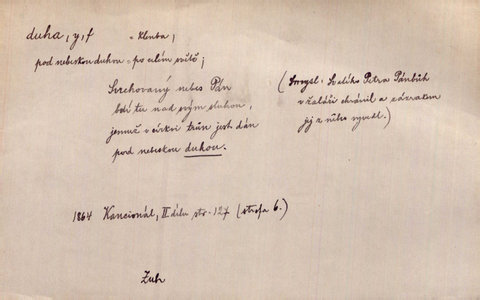 duha, y, f = klenba,
pod nebeskou duhou = po celém světě;
Svrchovaný nebes Pán
bdí tu nad svým sluhou,
jemuž v církvi trůn jest dán
pod nebeskou duhou.
(Smysl: Svatého Petra Pánbůh
v žaláři chránil a zázrakem
jej z něho vyvedl.)
1864 Kancionál, II dílu str. 127 (strofa 6.)
Zub